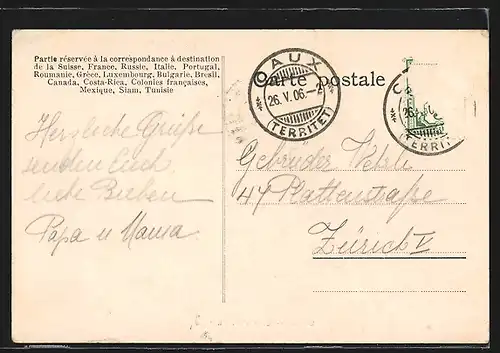 Partie réservée à la correspondance à destination
de la Suisse, France, Russie, Italie, Portugal,
Roumanie, Grèce, Luxembourg, Bulgarie, Bresil,
Canada, Costa-Rica, Colonies françaises,
Mexique, Siam, Tunisie
Carte postale
CAUX
26. V. 06.-2
(TERRITET)
C
26.
(TERRIT
Herzliche Grüße
senden Euch,
liebe Buben
Papa u Mama
Gebrüder Wehrli
47 Plattenstraße
Zürich V